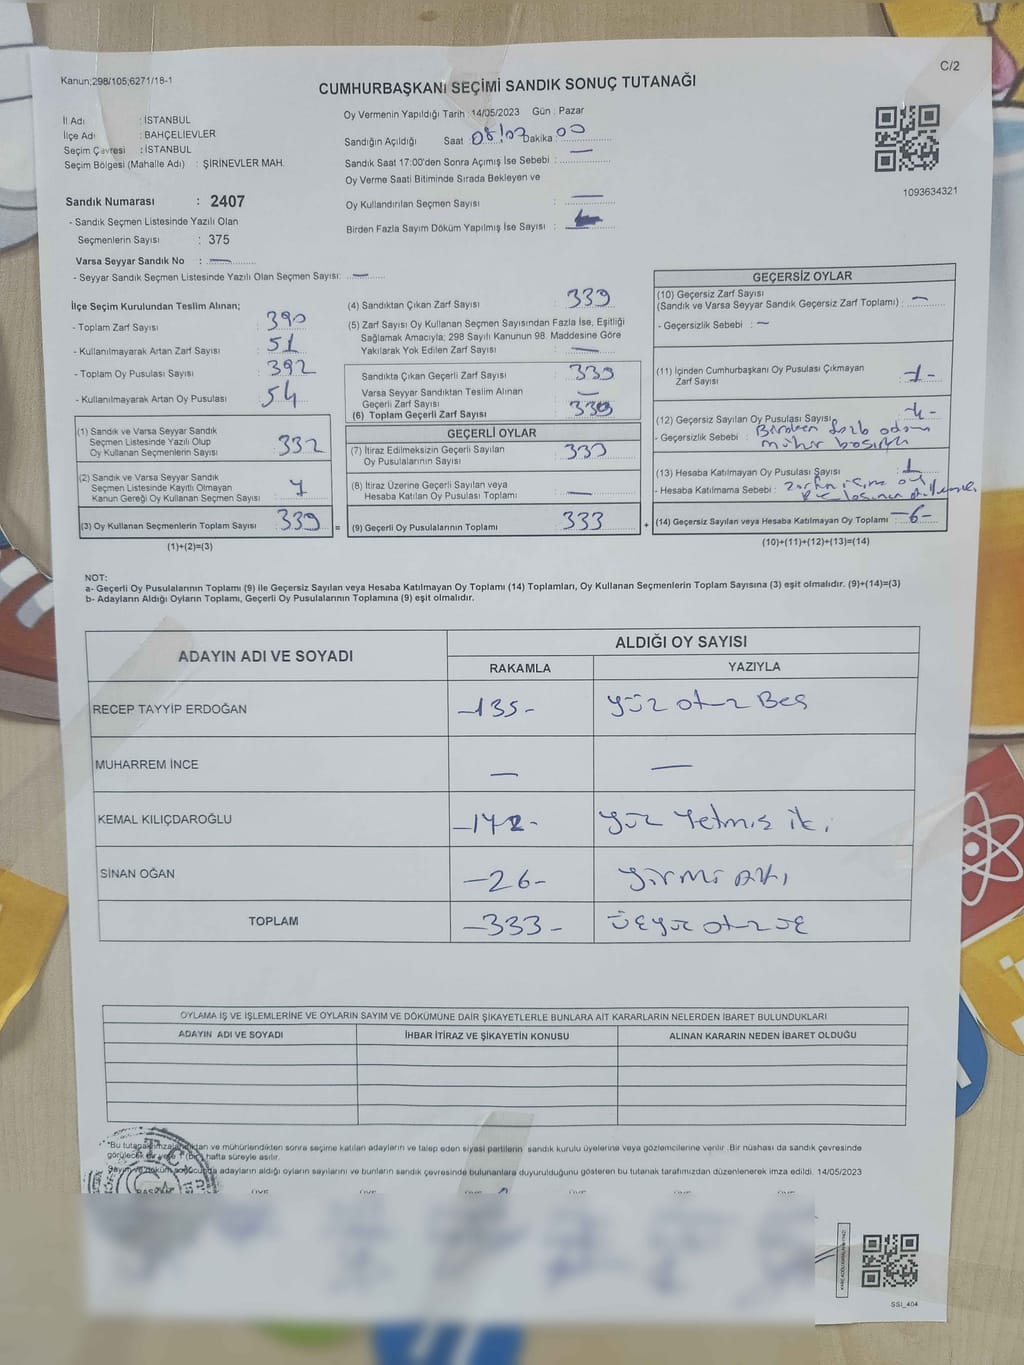 Kanun;298/105;6271/18-1
C/2
CUMHURBAŞKANI SEÇİMİ SANDIK SONUÇ TUTANAĞI
İl Adı : İSTANBUL
İlçe Adı : BAHÇELİEVLER
Seçim Çevresi : İSTANBUL
Seçim Bölgesi (Mahalle Adı) : ŞİRİNEVLER MAH.
Oy Vermenin Yapıldığı Tarih : 14/05/2023 Gün : Pazar
Sandığın Açıldığı Saat : Dakika : 00
Sandık Saat 17:00'den Sonra Açımış İse Sebebi : —
Oy Verme Saati Bitiminde Sırada Bekleyen ve
Oy Kullandırılan Seçmen Sayısı : —
Birden Fazla Sayım Döküm Yapılmış İse Sayısı :
1093634321
Sandık Numarası : 2407
- Sandık Seçmen Listesinde Yazılı Olan
Seçmenlerin Sayısı : 375
Varsa Seyyar Sandık No : —
- Seyyar Sandık Seçmen Listesinde Yazılı Olan Seçmen Sayısı: —
İlçe Seçim Kurulundan Teslim Alınan;
- Toplam Zarf Sayısı : 390
- Kullanılmayarak Artan Zarf Sayısı : 51
- Toplam Oy Pusulası Sayısı : 392
- Kullanılmayarak Artan Oy Pusulası : 54
(1) Sandık ve Varsa Seyyar Sandık
Seçmen Listesinde Yazılı Olup
Oy Kullanan Seçmenlerin Sayısı : 332
(2) Sandık ve Varsa Seyyar Sandık
Seçmen Listesinde Kayıtlı Olmayan
Kanun Gereği Oy Kullanan Seçmen Sayısı : 7
(3) Oy Kullanan Seçmenlerin Toplam Sayısı : 339 =
(1)+(2)=(3)
(4) Sandıktan Çıkan Zarf Sayısı : 339
(5) Zarf Sayısı Oy Kullanan Seçmen Sayısından Fazla İse, Eşitliği
Sağlamak Amacıyla; 298 Sayılı Kanunun 98. Maddesine Göre
Yakılarak Yok Edilen Zarf Sayısı : —
Sandıkta Çıkan Geçerli Zarf Sayısı : 339
Varsa Seyyar Sandıktan Teslim Alınan
Geçerli Zarf Sayısı : —
(6) Toplam Geçerli Zarf Sayısı : 339
GEÇERLİ OYLAR
(7) İtiraz Edilmeksizin Geçerli Sayılan
Oy Pusulalarının Sayısı : 333
(8) İtiraz Üzerine Geçerli Sayılan veya
Hesaba Katılan Oy Pusulası Toplamı : —
(9) Geçerli Oy Pusulalarının Toplamı : 333 +
GEÇERSİZ OYLAR
(10) Geçersiz Zarf Sayısı
(Sandık ve Varsa Seyyar Sandık Geçersiz Zarf Toplamı) : —
- Geçersizlik Sebebi : —
(11) İçinden Cumhurbaşkanı Oy Pusulası Çıkmayan
Zarf Sayısı : -1-
(12) Geçersiz Sayılan Oy Pusulası Sayısı : -4-
- Geçersizlik Sebebi : Birden fazla adaya
mühür
(13) Hesaba Katılmayan Oy Pusulası Sayısı : 1
- Hesaba Katılmama Sebebi : oy
(14) Geçersiz Sayılan veya Hesaba Katılmayan Oy Toplamı : -6-
(10)+(11)+(12)+(13)=(14)
NOT:
a- Geçerli Oy Pusulalarının Toplamı (9) ile Geçersiz Sayılan veya Hesaba Katılmayan Oy Toplamı (14) Toplamları, Oy Kullanan Seçmenlerin Toplam Sayısına (3) eşit olmalıdır. (9)+(14)=(3)
b- Adayların Aldığı Oyların Toplamı, Geçerli Oy Pusulalarının Toplamına (9) eşit olmalıdır.
ADAYIN ADI VE SOYADI
ALDIĞI OY SAYISI
RAKAMLA YAZIYLA
RECEP TAYYİP ERDOĞAN -135- Yüz otuz Beş
MUHARREM İNCE — —
KEMAL KILIÇDAROĞLU -172- Yüz Yetmiş iki
SİNAN OĞAN -26- Yirmi Altı
TOPLAM -333- Üçyüz otuz üç
OYLAMA İŞ VE İŞLEMLERİNE VE OYLARIN SAYIM VE DÖKÜMÜNE DAİR ŞİKAYETLERLE BUNLARA AİT KARARLARIN NELERDEN İBARET BULUNDUKLARI
ADAYIN ADI VE SOYADI İHBAR İTİRAZ VE ŞİKAYETİN KONUSU ALINAN KARARIN NEDEN İBARET OLDUĞU
ve mühürlendikten sonra seçime katılan adayların ve talep eden siyasi partilerin sandık kurulu üyelerine veya gözlemcilerine verilir. Bir nüshası da sandık çevresinde
hafta süreyle asılır.
adayların aldığı oyların sayılarını ve bunların sandık çevresinde bulunanlara duyurulduğunu gösteren bu tutanak tarafımızdan düzenlenerek imza edildi. 14/05/2023
SSI_404